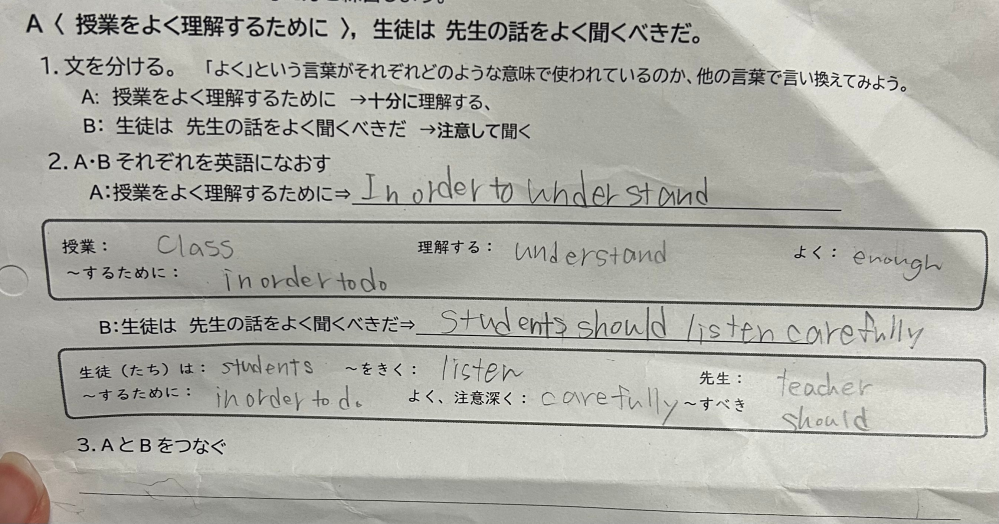 A〈 授業をよく理解するために 〉, 生徒は 先生の話をよく聞くべきだ。
1. 文を分ける。 「よく」という言葉がそれぞれどのような意味で使われているのか、他の言葉で言い換えてみよう。
A: 授業をよく理解するために →十分に理解する、
B: 生徒は 先生の話をよく聞くべきだ →注意して聞く
2. A・B それぞれを英語になおす
A:授業をよく理解するために⇒ In order to understand
授業: class 理解する: understand よく: enough
~するために: in order to do
B:生徒は 先生の話をよく聞くべきだ⇒ students should listen carefully
生徒(たち)は: students ~をきく: listen 先生: teacher
~するために: in order to do よく、注意深く: carefully ~すべき should
3. A と B をつなぐ